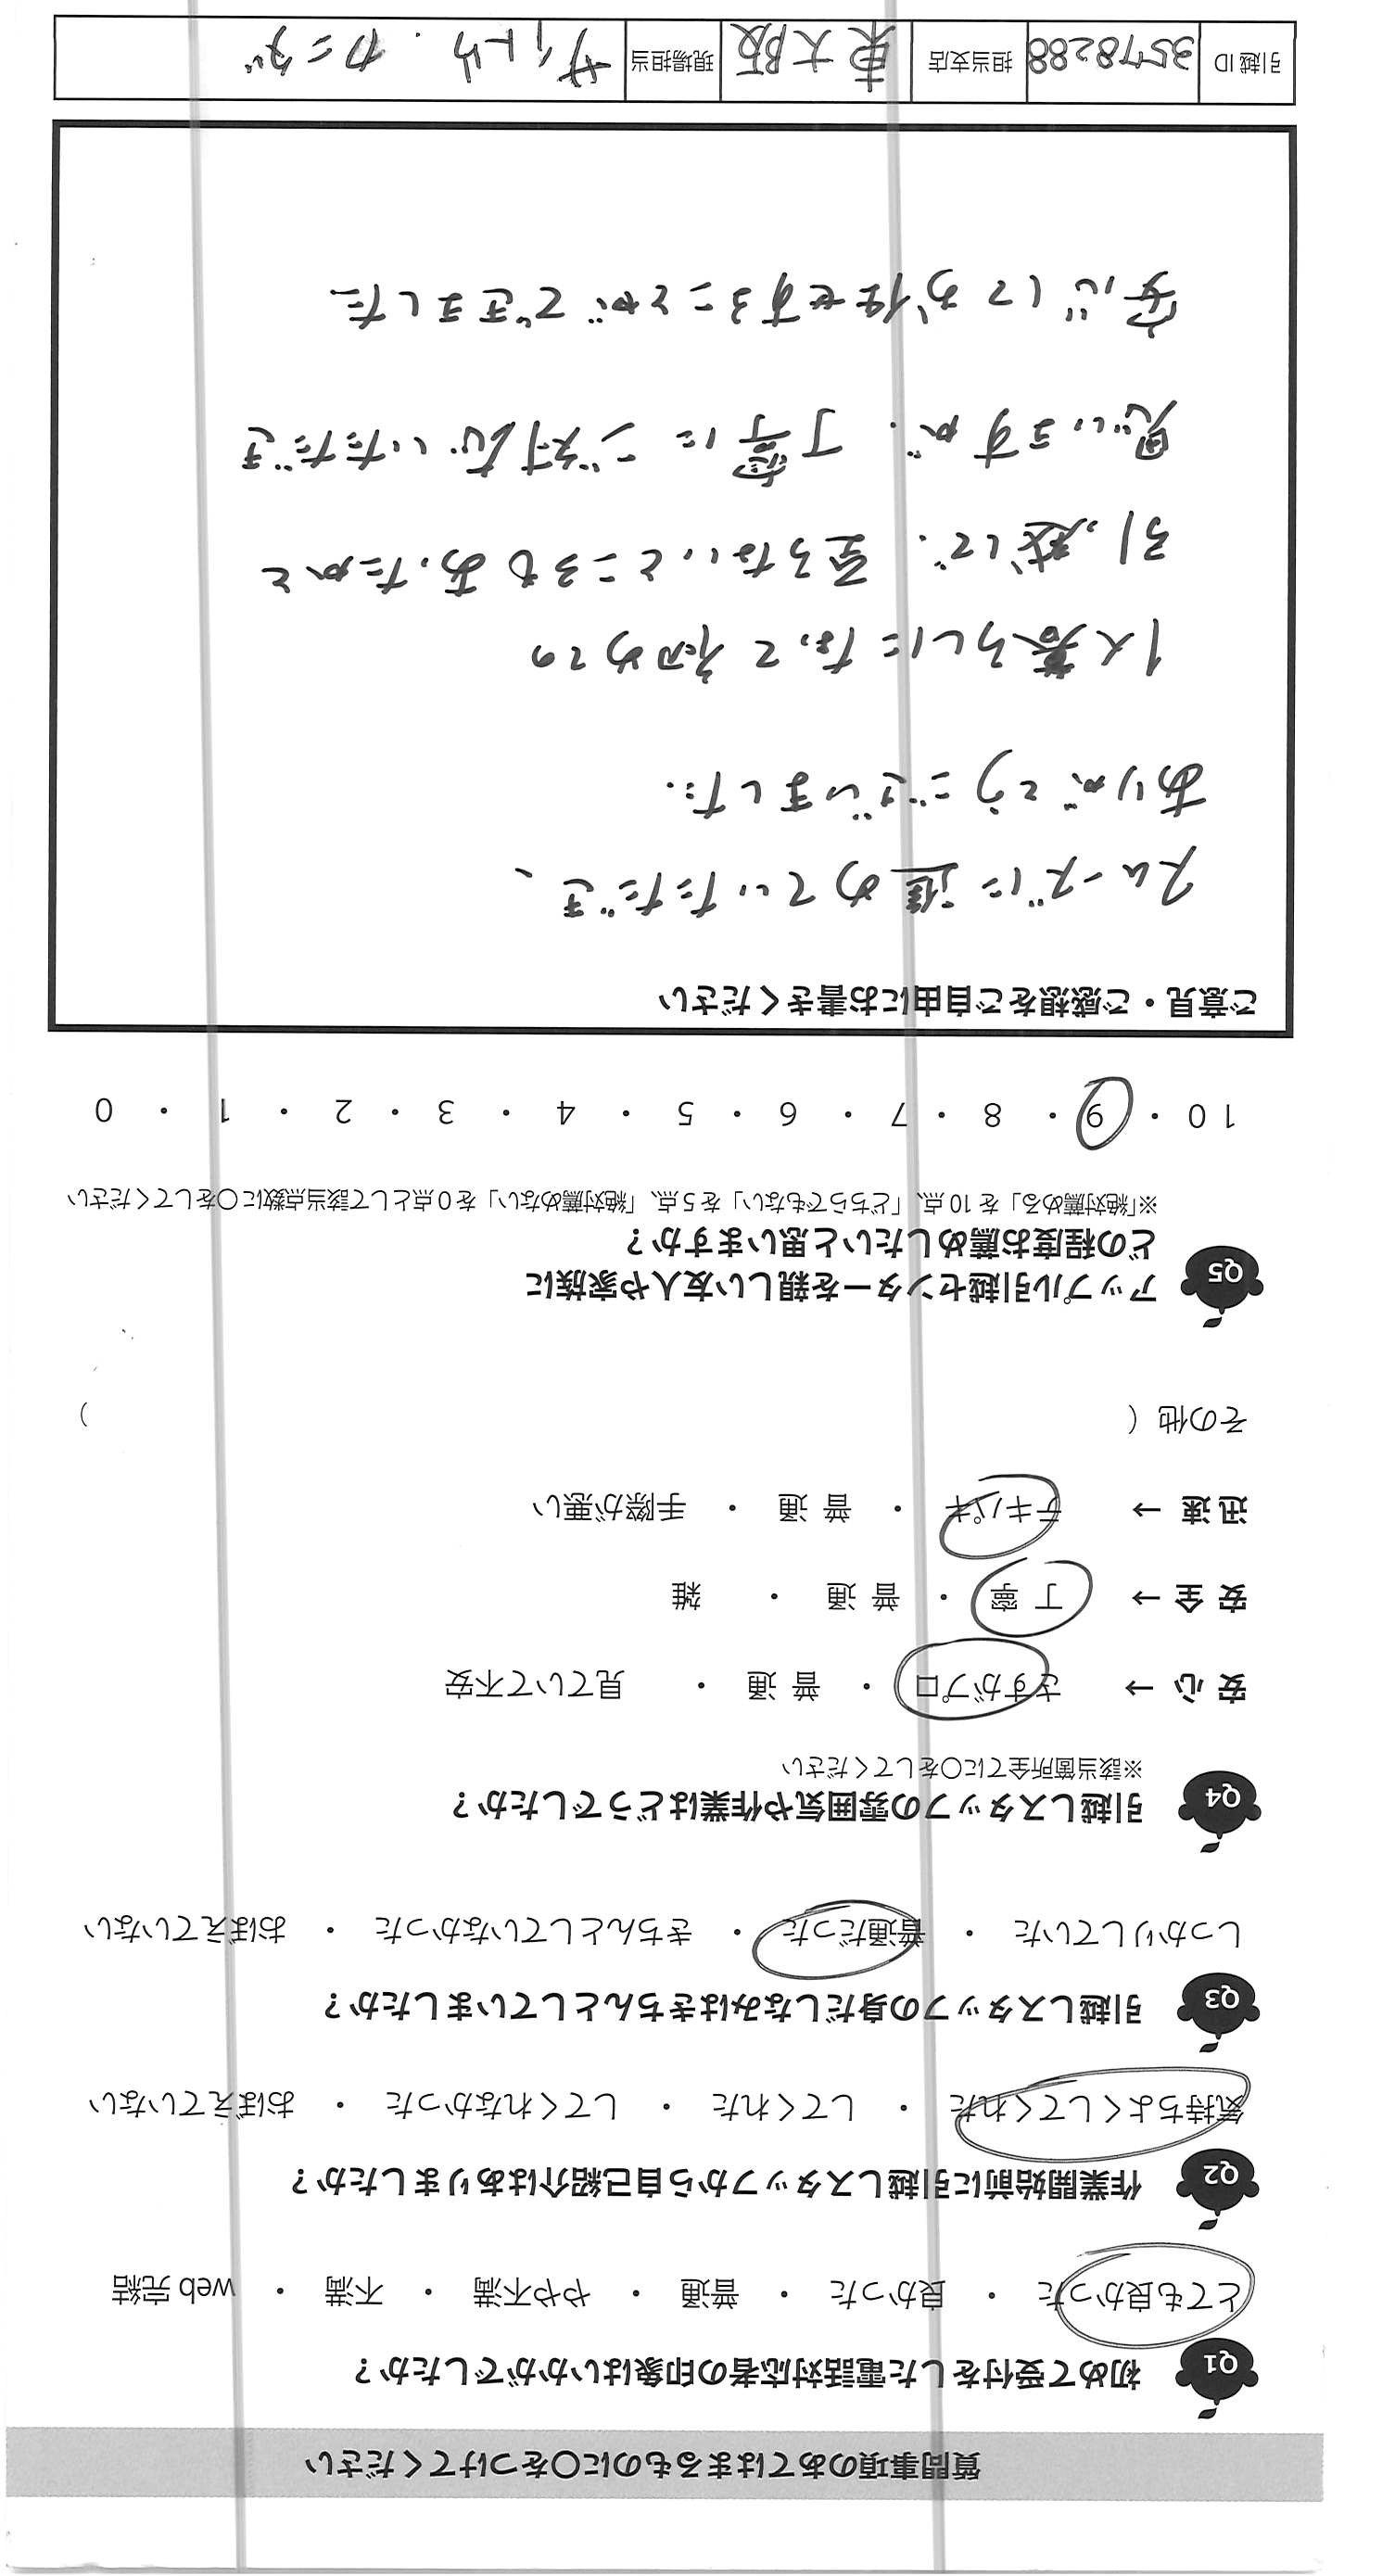 質問事項のあてはまるものに○をつけてください
Q1 初めて受付をした電話対応者の印象はいかがでしたか？
とても良かった ・ 良かった ・ 普通 ・ やや不満 ・ 不満 ・ web 完結
Q2 作業開始前に引越しスタッフから自己紹介はありましたか？
気持ちよくしてくれた ・ してくれた ・ してくれなかった ・ おぼえていない
Q3 引越しスタッフの身だしなみはきちんとしていましたか？
しっかりしていた ・ 普通だった ・ きちんとしていなかった ・ おぼえていない
Q4 引越しスタッフの雰囲気や作業はどうでしたか？
※該当箇所全てに○をしてください
安 心 → さすがプロ ・ 普 通 ・ 見ていて不安
安 全 → 丁 寧 ・ 普 通 ・ 雑
迅 速 → テキパキ ・ 普 通 ・ 手際が悪い
その他（ ）
Q5 アップル引越センターを親しい友人や家族に
どの程度お薦めしたいと思いますか？
※「絶対薦める」を 10 点、「どちらでもない」を 5 点、「絶対薦めない」を 0 点として該当点数に○をしてください
10 ・ 9 ・ 8 ・ 7 ・ 6 ・ 5 ・ 4 ・ 3 ・ 2 ・ 1 ・ 0
ご意見・ご感想をご自由にお書きください
スムーズに進めていただき、
ありがとうございました.
1人暮らしになって初めての
引っ越しで、至らないところもあったかと
思いますが、丁寧にご対応いただき
安心してお任せすることができました
引越 ID 35778288 担当支店 東大阪 現場担当 サイトウ・カニダ